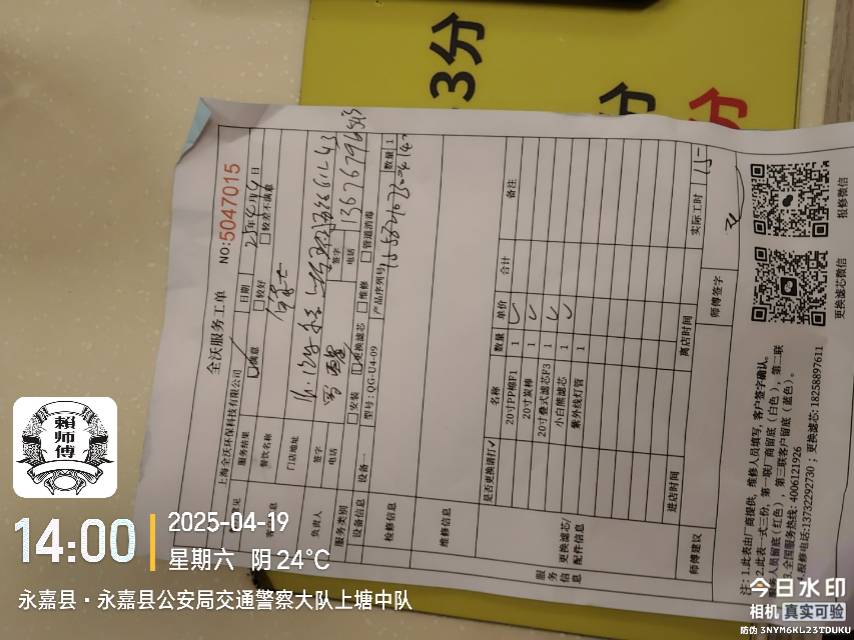 3分
分
分
全沃服务工单
NO:5047015
上海全沃环保科技有限公司
日期
25年4月19日
服务结果
满意
较好
较差不满意
客户信息
餐饮名称
门店地址
负责人
签字
电话
签字
电话
13676796843
服务类别
安装
更换滤芯
维修
管道消毒
设备信息
设备一
型号:QG-U4-09
产品序列号
数量
1
检修信息
维修信息
服务信息
更换滤芯/配件信息
是否更换请打✓
名称
数量
单价
合计
备注
20寸PP棉F1
1
✓
20寸炭棒
1
✓
20寸叠式滤芯F3
1
✓
小白熊滤芯
1
✓
紫外线灯管
1
进店时间
离店时间
实际工时
师傅建议
师傅签字
注:1.此表由厂商提供,维修人员填写,客户签字确认。
2.此表一式三份,第一联厂商留底(白色),第二联
人员留底(红色),第三联客户留底(蓝色)。
3.全国服务热线:4006121926
报修电话:13732292730;更换滤芯:18258897611
更换滤芯微信
报修微信
賴师傅
14:00
2025-04-19
星期六 阴 24℃
永嘉县·永嘉县公安局交通警察大队上塘中队
今日水印
相机 真实可验
防伪 3NYM6KL23TDUKU